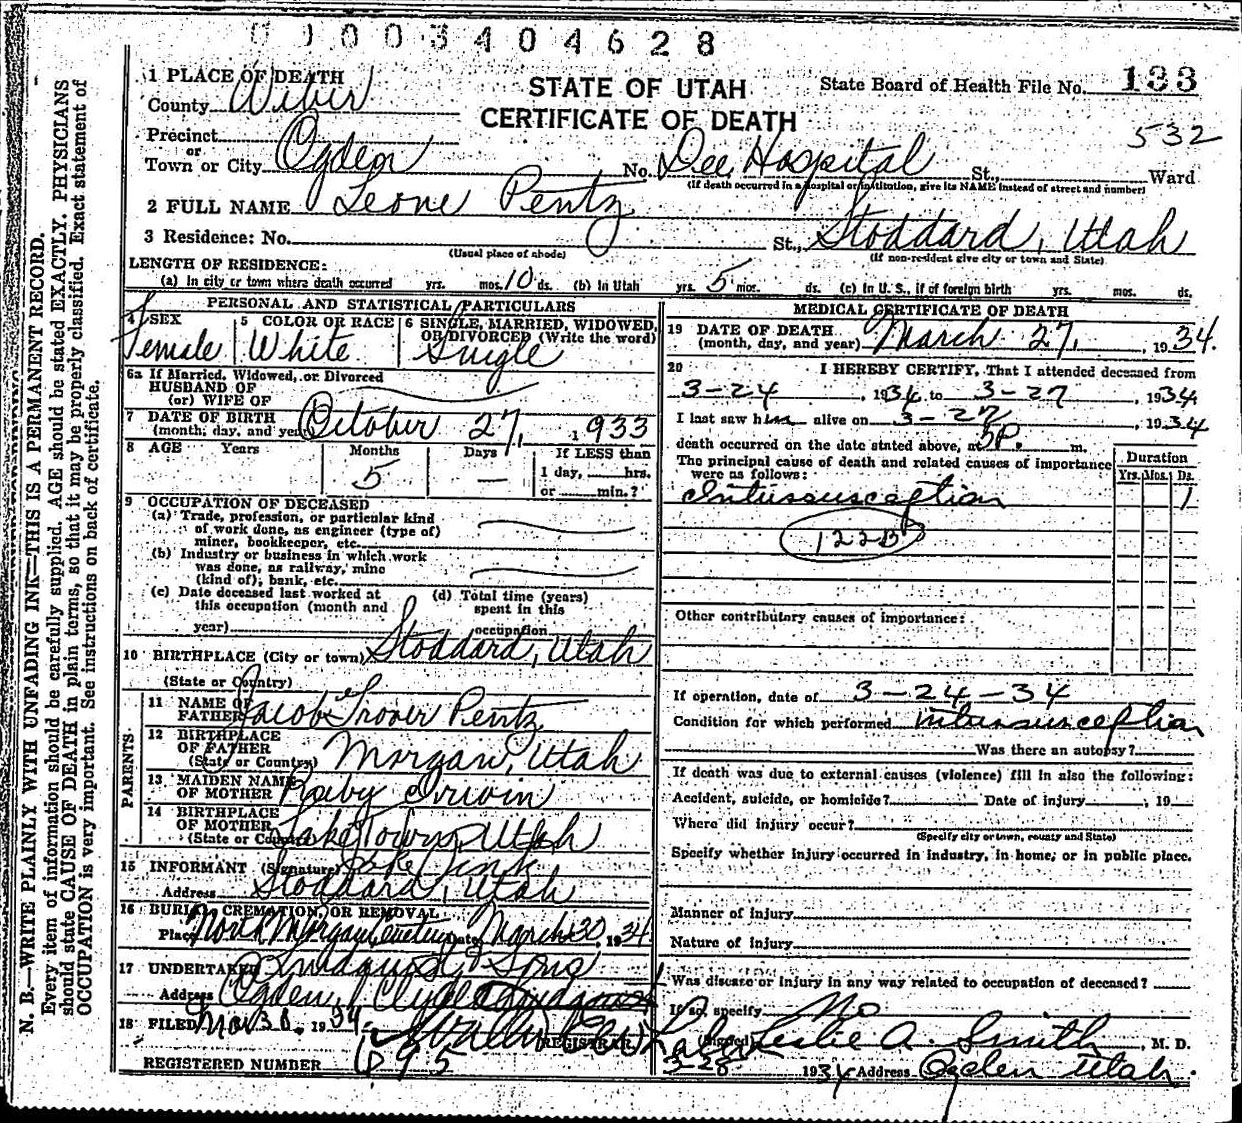 0 0 0 3 4 0 4 6 2 8
1 PLACE OF DEATH
County Weber
STATE OF UTAH
CERTIFICATE OF DEATH
State Board of Health File No. 133
532
Precinct
or
Town or City Ogden No. Dee Hospital St., Ward
(If death occurred in a hospital or institution, give its NAME instead of street and number)
2 FULL NAME Leone Pentz
3 Residence: No. St., Stoddard, Utah
(Usual place of abode) (If non-resident give city or town and State)
LENGTH OF RESIDENCE:
(a) In city or town where death occurred yrs. mos. 10 ds. (b) In Utah yrs. 5 mos. ds. (c) In U. S., if of foreign birth yrs. mos. ds.
PERSONAL AND STATISTICAL PARTICULARS
4 SEX
Female
5 COLOR OR RACE
White
6 SINGLE, MARRIED, WIDOWED, OR DIVORCED (Write the word)
Single
6a If Married, Widowed, or Divorced
HUSBAND OF
(or) WIFE OF
7 DATE OF BIRTH
(month, day, and year) October 27, 1933
8 AGE Years Months Days If LESS than
5 — 1 day, hrs.
or min.?
9 OCCUPATION OF DECEASED
(a) Trade, profession, or particular kind
of work done, as engineer (type of)
miner, bookkeeper, etc.
(b) Industry or business in which work
was done, as railway, mine
(kind of), bank, etc.
(c) Date deceased last worked at
this occupation (month and
year)
(d) Total time (years)
spent in this
occupation
10 BIRTHPLACE (City or town) Stoddard, Utah
(State or Country)
PARENTS
11 NAME OF
FATHER Jacob Grover Pentz
12 BIRTHPLACE
OF FATHER
(State or Country) Morgan, Utah
13 MAIDEN NAME
OF MOTHER Ruby Irwin
14 BIRTHPLACE
OF MOTHER
(State or Country) Lake Town, Utah
15 INFORMANT (Signature)
Address Stoddard, Utah
16 BURIAL, CREMATION, OR REMOVAL
Place North Morgan Cemetery Date March 30, 1934
17 UNDERTAKER Lindquist & Sons
Address Ogden, Clyde Lindquist
18 FILED Mar 30, 1934
REGISTRAR
REGISTERED NUMBER 1895
MEDICAL CERTIFICATE OF DEATH
19 DATE OF DEATH
(month, day, and year) March 27, 1934.
20 I HEREBY CERTIFY, That I attended deceased from
3-24, 1934 to 3-27, 1934
I last saw him alive on 3-27, 1934
death occurred on the date stated above, at 5P. m.
The principal cause of death and related causes of importance
were as follows:
Duration
Yrs. Mos. Ds.
Intussusception 1
122B
Other contributory causes of importance:
If operation, date of 3-24-34
Condition for which performed intussusception
Was there an autopsy?
If death was due to external causes (violence) fill in also the following:
Accident, suicide, or homicide? Date of injury , 19
Where did injury occur?
(Specify city or town, county and State)
Specify whether injury occurred in industry, in home, or in public place.
Manner of Injury
Nature of Injury
Was disease or injury in any way related to occupation of deceased?
If so, specify No
(Signed) Leslie A. Smith, M. D.
3-28- 1934 Address Ogden Utah.
N. B.—WRITE PLAINLY WITH UNFADING INK—THIS IS A PERMANENT RECORD.
Every item of information should be carefully supplied. AGE should be stated EXACTLY. PHYSICIANS
should state CAUSE OF DEATH in plain terms, so that it may be properly classified. Exact statement of
OCCUPATION is very important. See instructions on back of certificate.